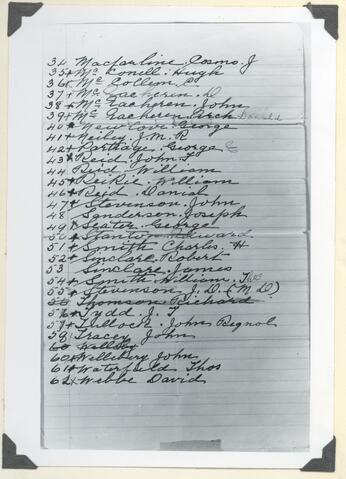 34 Macfarline, Cosmo. J
35+ Mc Conell. Hugh
36x Mc Collem
37+ Mc Eacherin. D
38+ Mc Eachren. John
39+ Mc Eacheren Arch
40x Newlove George
41x Neiley. J. M. R
42+ Partage. George
43 Reid John T.
44 Reid William
45x Reikie. William
46x Reid. Danial
47+ Stevenson. John
48 Sanderson. Joseph
49x Seater. George
50 Stanton Edward
51+ Smith Charles. H
52x Sinclare. Robert
53 Sinclare. James
54x Smith William. Thos
55x Stevenson, J. D. (M. D.)
Thomson Richard
56x Tydd J. T
57+ Tullock. John Bignol
58 Tracey John
60 Wellsby
60x Wellesbery John
61x Waterfield Thos
62x Webbe David